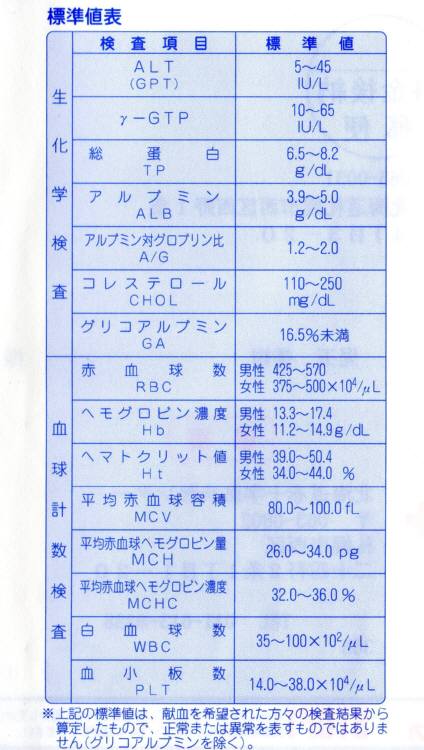 標準値表
検査項目 標準値
生化学検査
ALT
(GPT)
5〜45
IU/L
γ−GTP
10〜65
IU/L
総蛋白
TP
6.5〜8.2
g/dL
アルブミン
ALB
3.9〜5.0
g/dL
アルブミン対グロブリン比
A/G
1.2〜2.0
コレステロール
CHOL
110〜250
mg/dL
グリコアルブミン
GA
16.5%未満
血球計数検査
赤血球数
RBC
男性 425〜570
女性 375〜500×10⁴/μL
ヘモグロビン濃度
Hb
男性 13.3〜17.4
女性 11.2〜14.9g/dL
ヘマトクリット値
Ht
男性 39.0〜50.4
女性 34.0〜44.0 %
平均赤血球容積
MCV
80.0〜100.0 fL
平均赤血球ヘモグロビン量
MCH
26.0〜34.0 pg
平均赤血球ヘモグロビン濃度
MCHC
32.0〜36.0 %
白血球数
WBC
35〜100×10²/μL
血小板数
PLT
14.0〜38.0×10⁴/μL
※上記の標準値は、献血を希望された方々の検査結果から
算定したもので、正常または異常を表すものではありま
せん(グリコアルブミンを除く)。